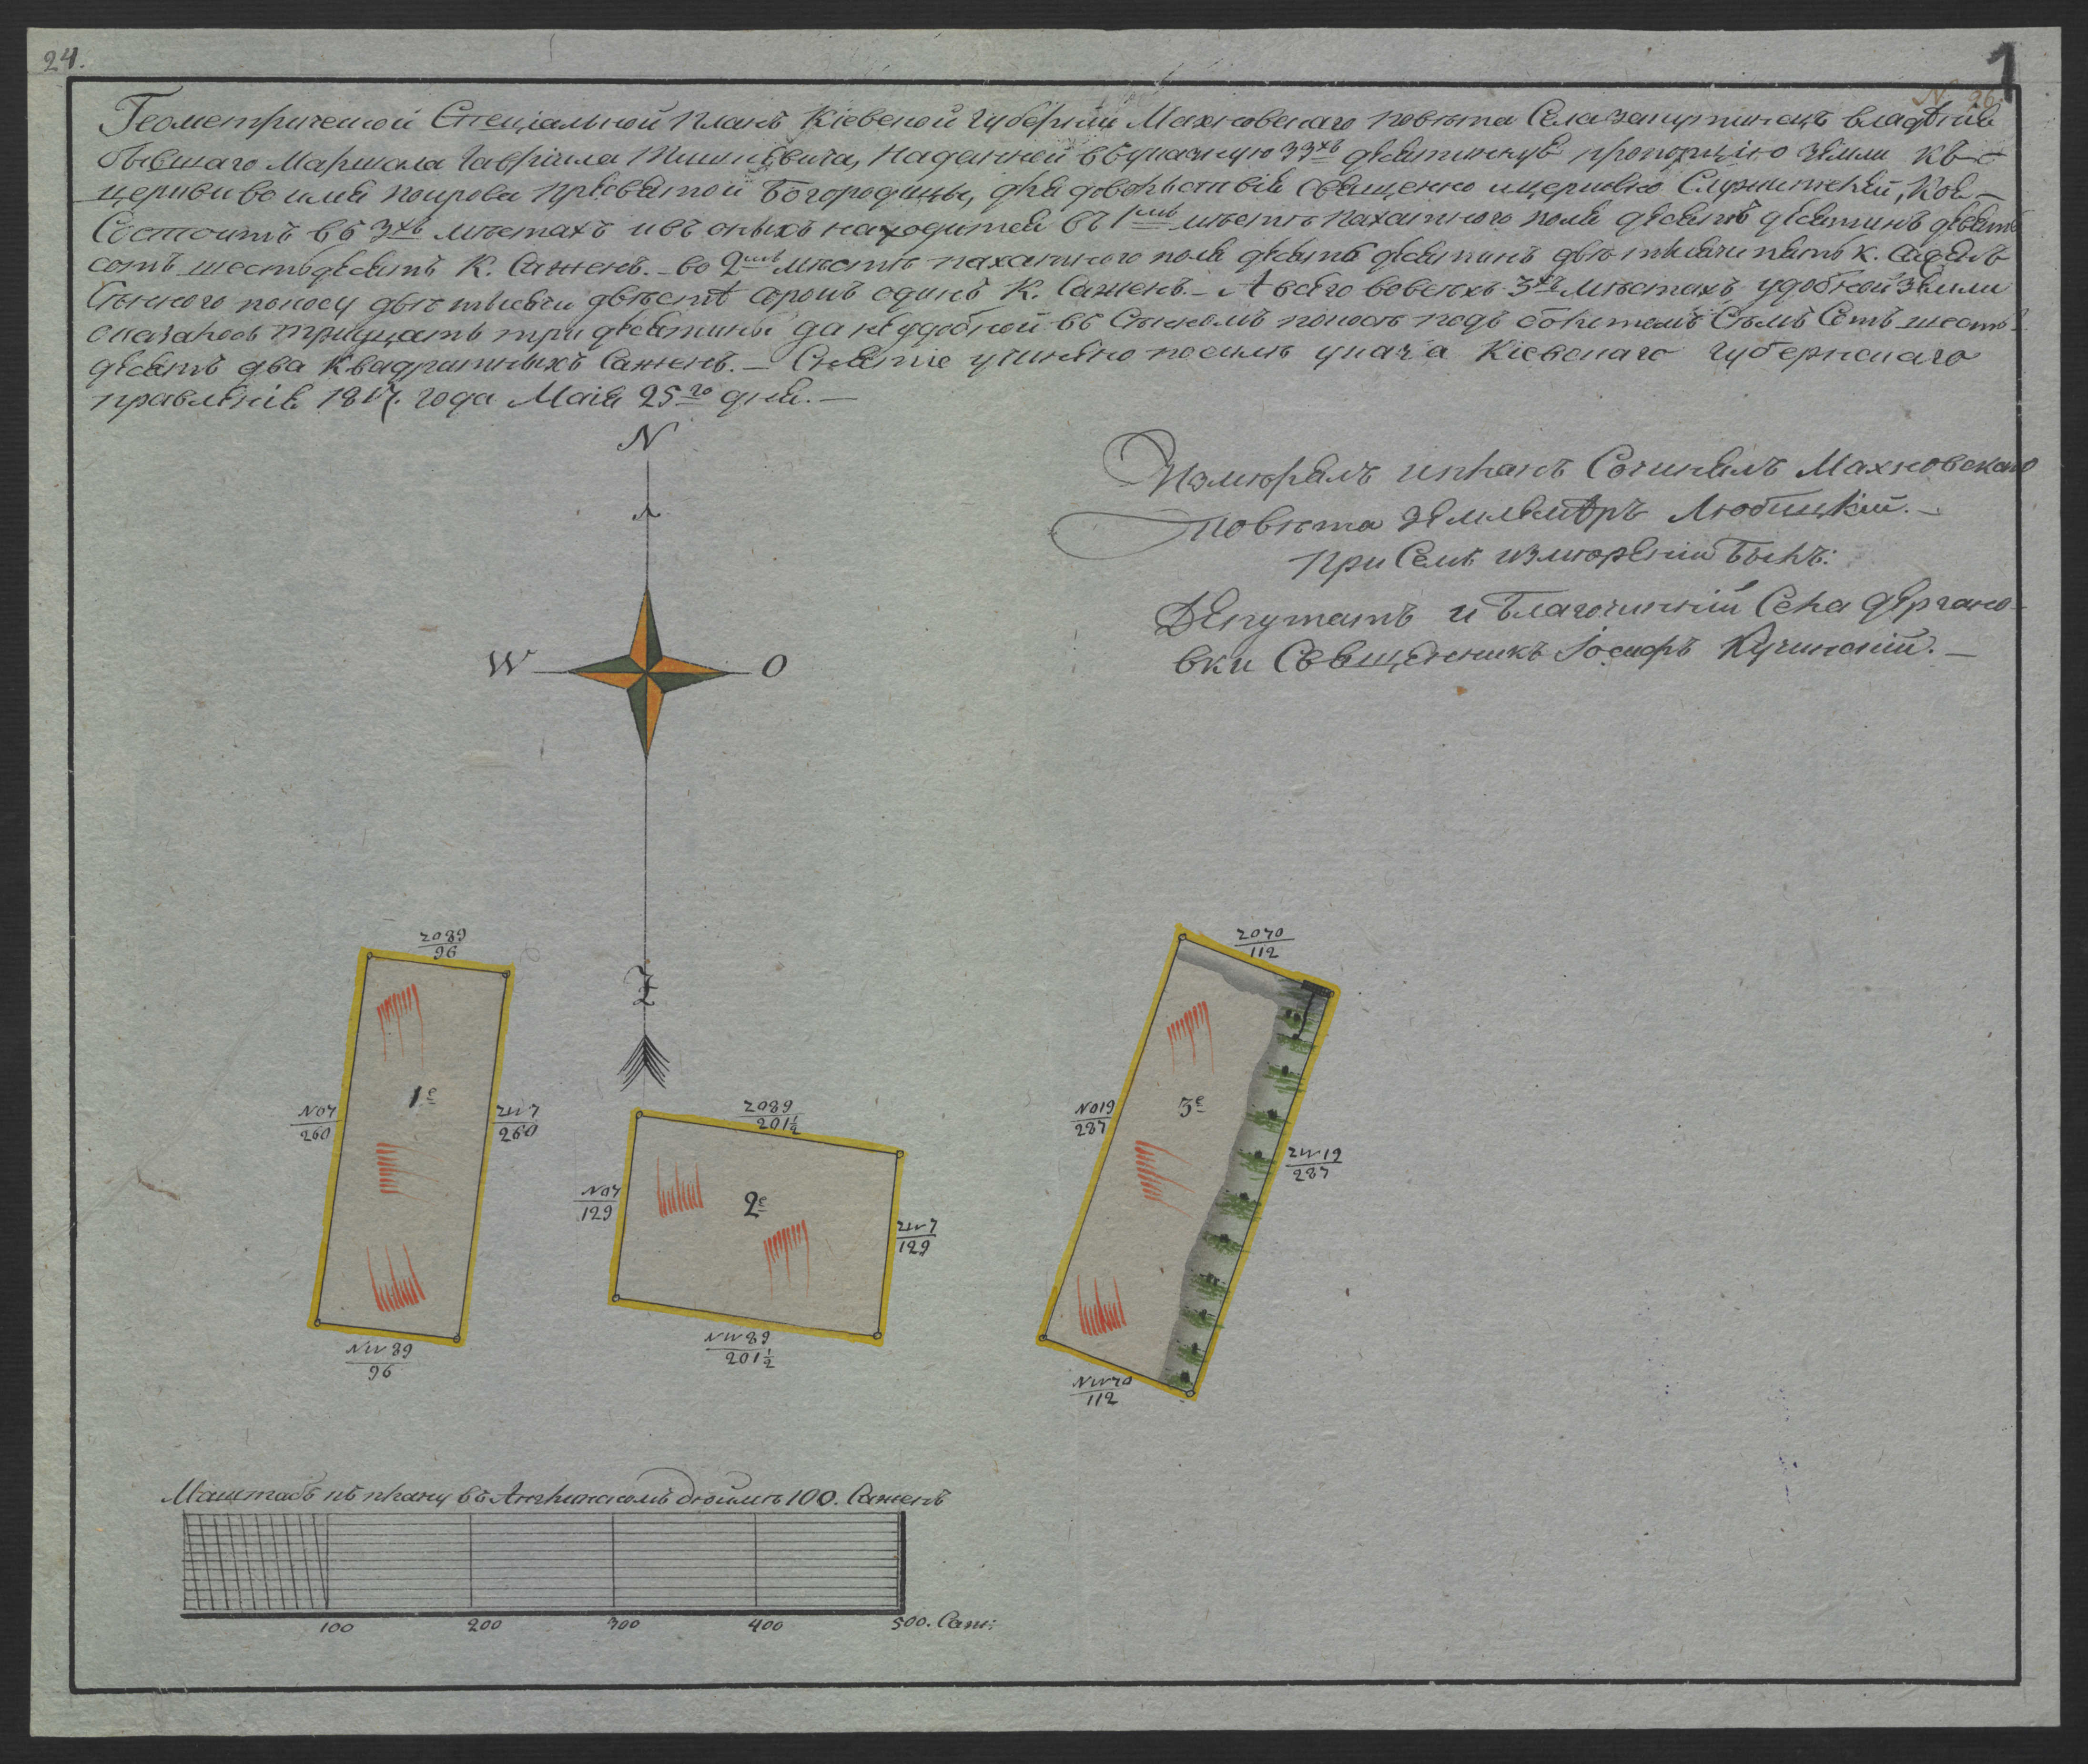 24.
1
N. 26
Геометрической Спецiальной Планъ Кiевской Губернiи Махновскаго повѣта Села владѣнiя
бывшаго Маршала Гаврiила надѣнной въ указную 33хъ десятинную пропорцiю Земли къ
церкви во имя Покрова Пресвятой Богородицы, для довольствiя Священно и церковно Служителей, Коя
Состоитъ въ 3хъ мѣстахъ и въ оныхъ находится въ 1мъ мѣстѣ пахатного поля десять десятинъ девять
сотъ шестьдесятъ К. Саженъ. — во 2мъ мѣстѣ пахатного поля десять десятинъ двѣ тысячи пять К. Саженъ
Сѣнного покосу двѣ тысячи двѣстѣ сорокъ одинъ К. Саженъ. — А всего вовсѣхъ 3хъ мѣстахъ удобной Земли
оказалось тридцать три десятины да неудобной въ Сѣнномъ покосѣ подъ болотомъ Семъ Сотъ шесть
десятъ два Квадратныхъ Саженъ. — Снятiе учинено посилѣ указа Кiевскаго Губернскаго
правленiя 1817. года Маiя 25го дня. —
Измѣрялъ и планъ Сочинялъ Махновскаго
повѣта Землемѣръ Любицкiй. —
При Семъ измѣренiи Былъ:
Депутатъ и Благочинный Села Дергано-
вки Священникъ Iосифъ Кучинскiй. —
N
W
O
Z
2089
96
2070
112
1е
N07
260
ZW7
260
3е
N019
287
ZW19
287
2089
201½
2е
N07
129
ZW7
129
NW89
96
NW89
201½
NW70
112
Маштабъ въ Англинскомъ дюймѣ 100. Саженъ
100 200 300 400 500. Саж: